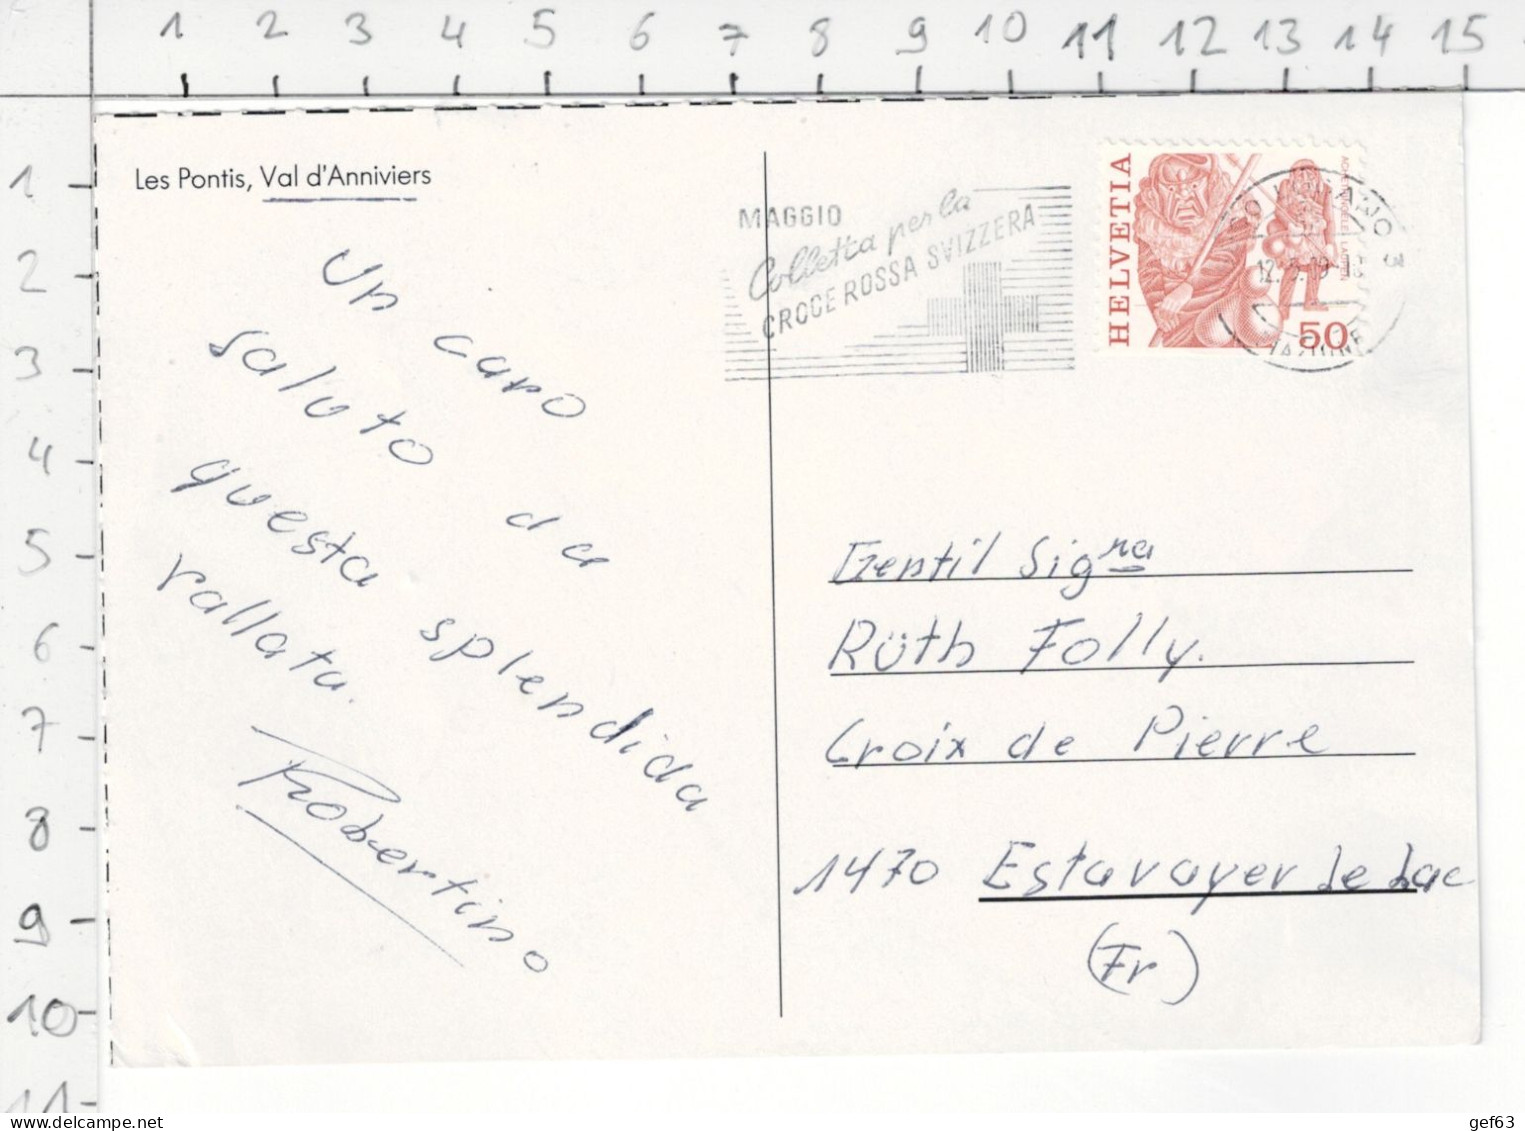 1 2 3 4 5 6 7 8 9 10 11 12 13 14 15
1
2
3
4
5
6
7
8
9
10
11
Les Pontis, Val d'Anniviers
Un caro
saluto da
questa splendida
vallata.
Robertino
MAGGIO
Colletta per la
CROCE ROSSA SVIZZERA
HELVETIA
50
12.5.79-18
3
Gentil Sigra
Rüth Folly.
Croix de Pierre
1470 Estavayer Le Lac
(Fr)
www.delcampe.net
gef63